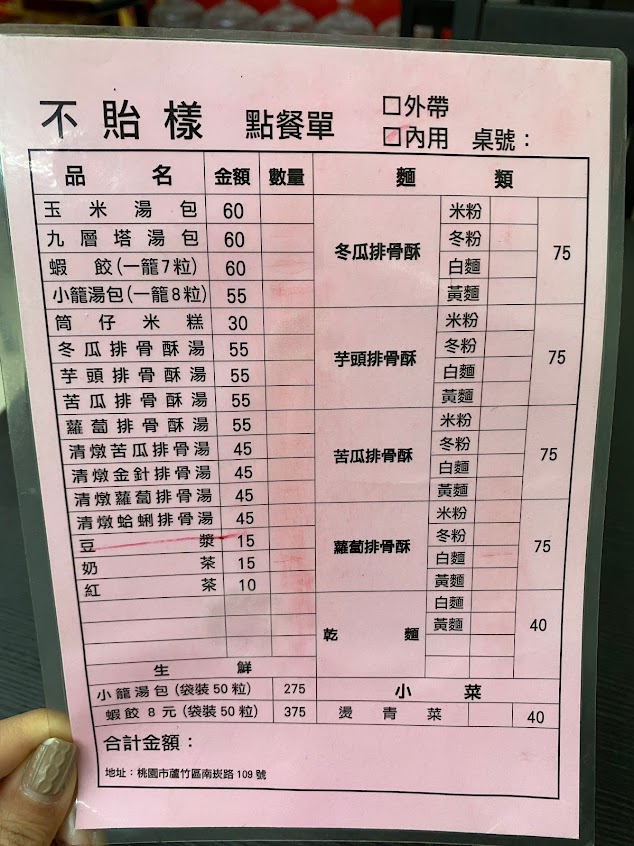 不貽樣 點餐單 □外帶
□內用 桌號：
品名 金額 數量 麵類
玉米湯包 60
九層塔湯包 60
蝦餃(一籠7粒) 60
小籠湯包(一籠8粒) 55
筒仔米糕 30
冬瓜排骨酥湯 55
芋頭排骨酥湯 55
苦瓜排骨酥湯 55
蘿蔔排骨酥湯 55
清燉苦瓜排骨湯 45
清燉金針排骨湯 45
清燉蘿蔔排骨湯 45
清燉蛤蜊排骨湯 45
豆漿 15
奶茶 15
紅茶 10
生鮮
小籠湯包(袋裝50粒) 275
蝦餃8元(袋裝50粒) 375
冬瓜排骨酥 75
米粉
冬粉
白麵
黃麵
芋頭排骨酥 75
米粉
冬粉
白麵
黃麵
苦瓜排骨酥 75
米粉
冬粉
白麵
黃麵
蘿蔔排骨酥 75
米粉
冬粉
白麵
黃麵
乾麵 40
白麵
黃麵
小菜
燙青菜 40
合計金額：
地址：桃園市蘆竹區南崁路109號